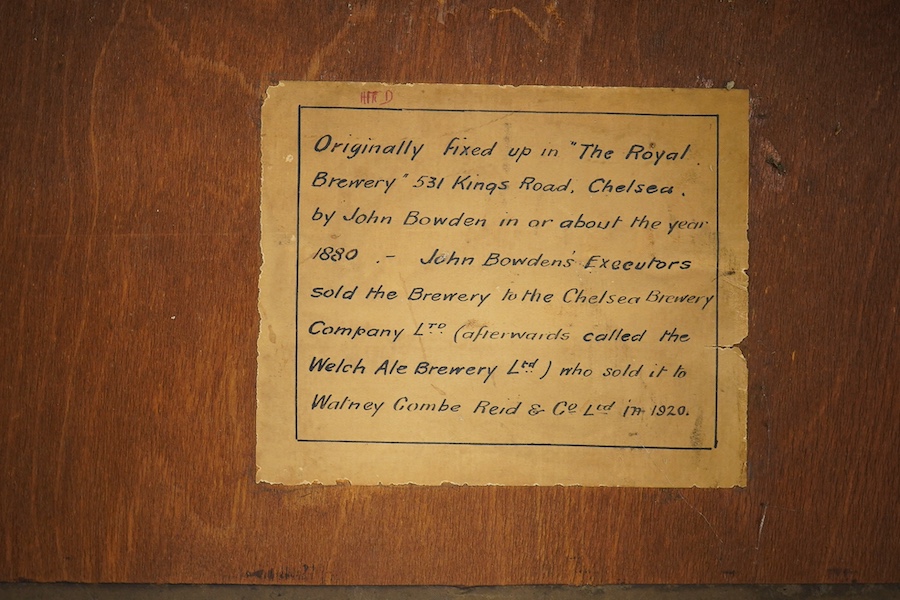 Originally fixed up in "The Royal
Brewery" 531 Kings Road, Chelsea.
by John Bowden in or about the year
1880 .– John Bowden's Executors
sold the Brewery to the Chelsea Brewery
Company Ltd (afterwards called the
Welch Ale Brewery Ltd) who sold it to
Watney Combe Reid & Co Ltd in 1920.